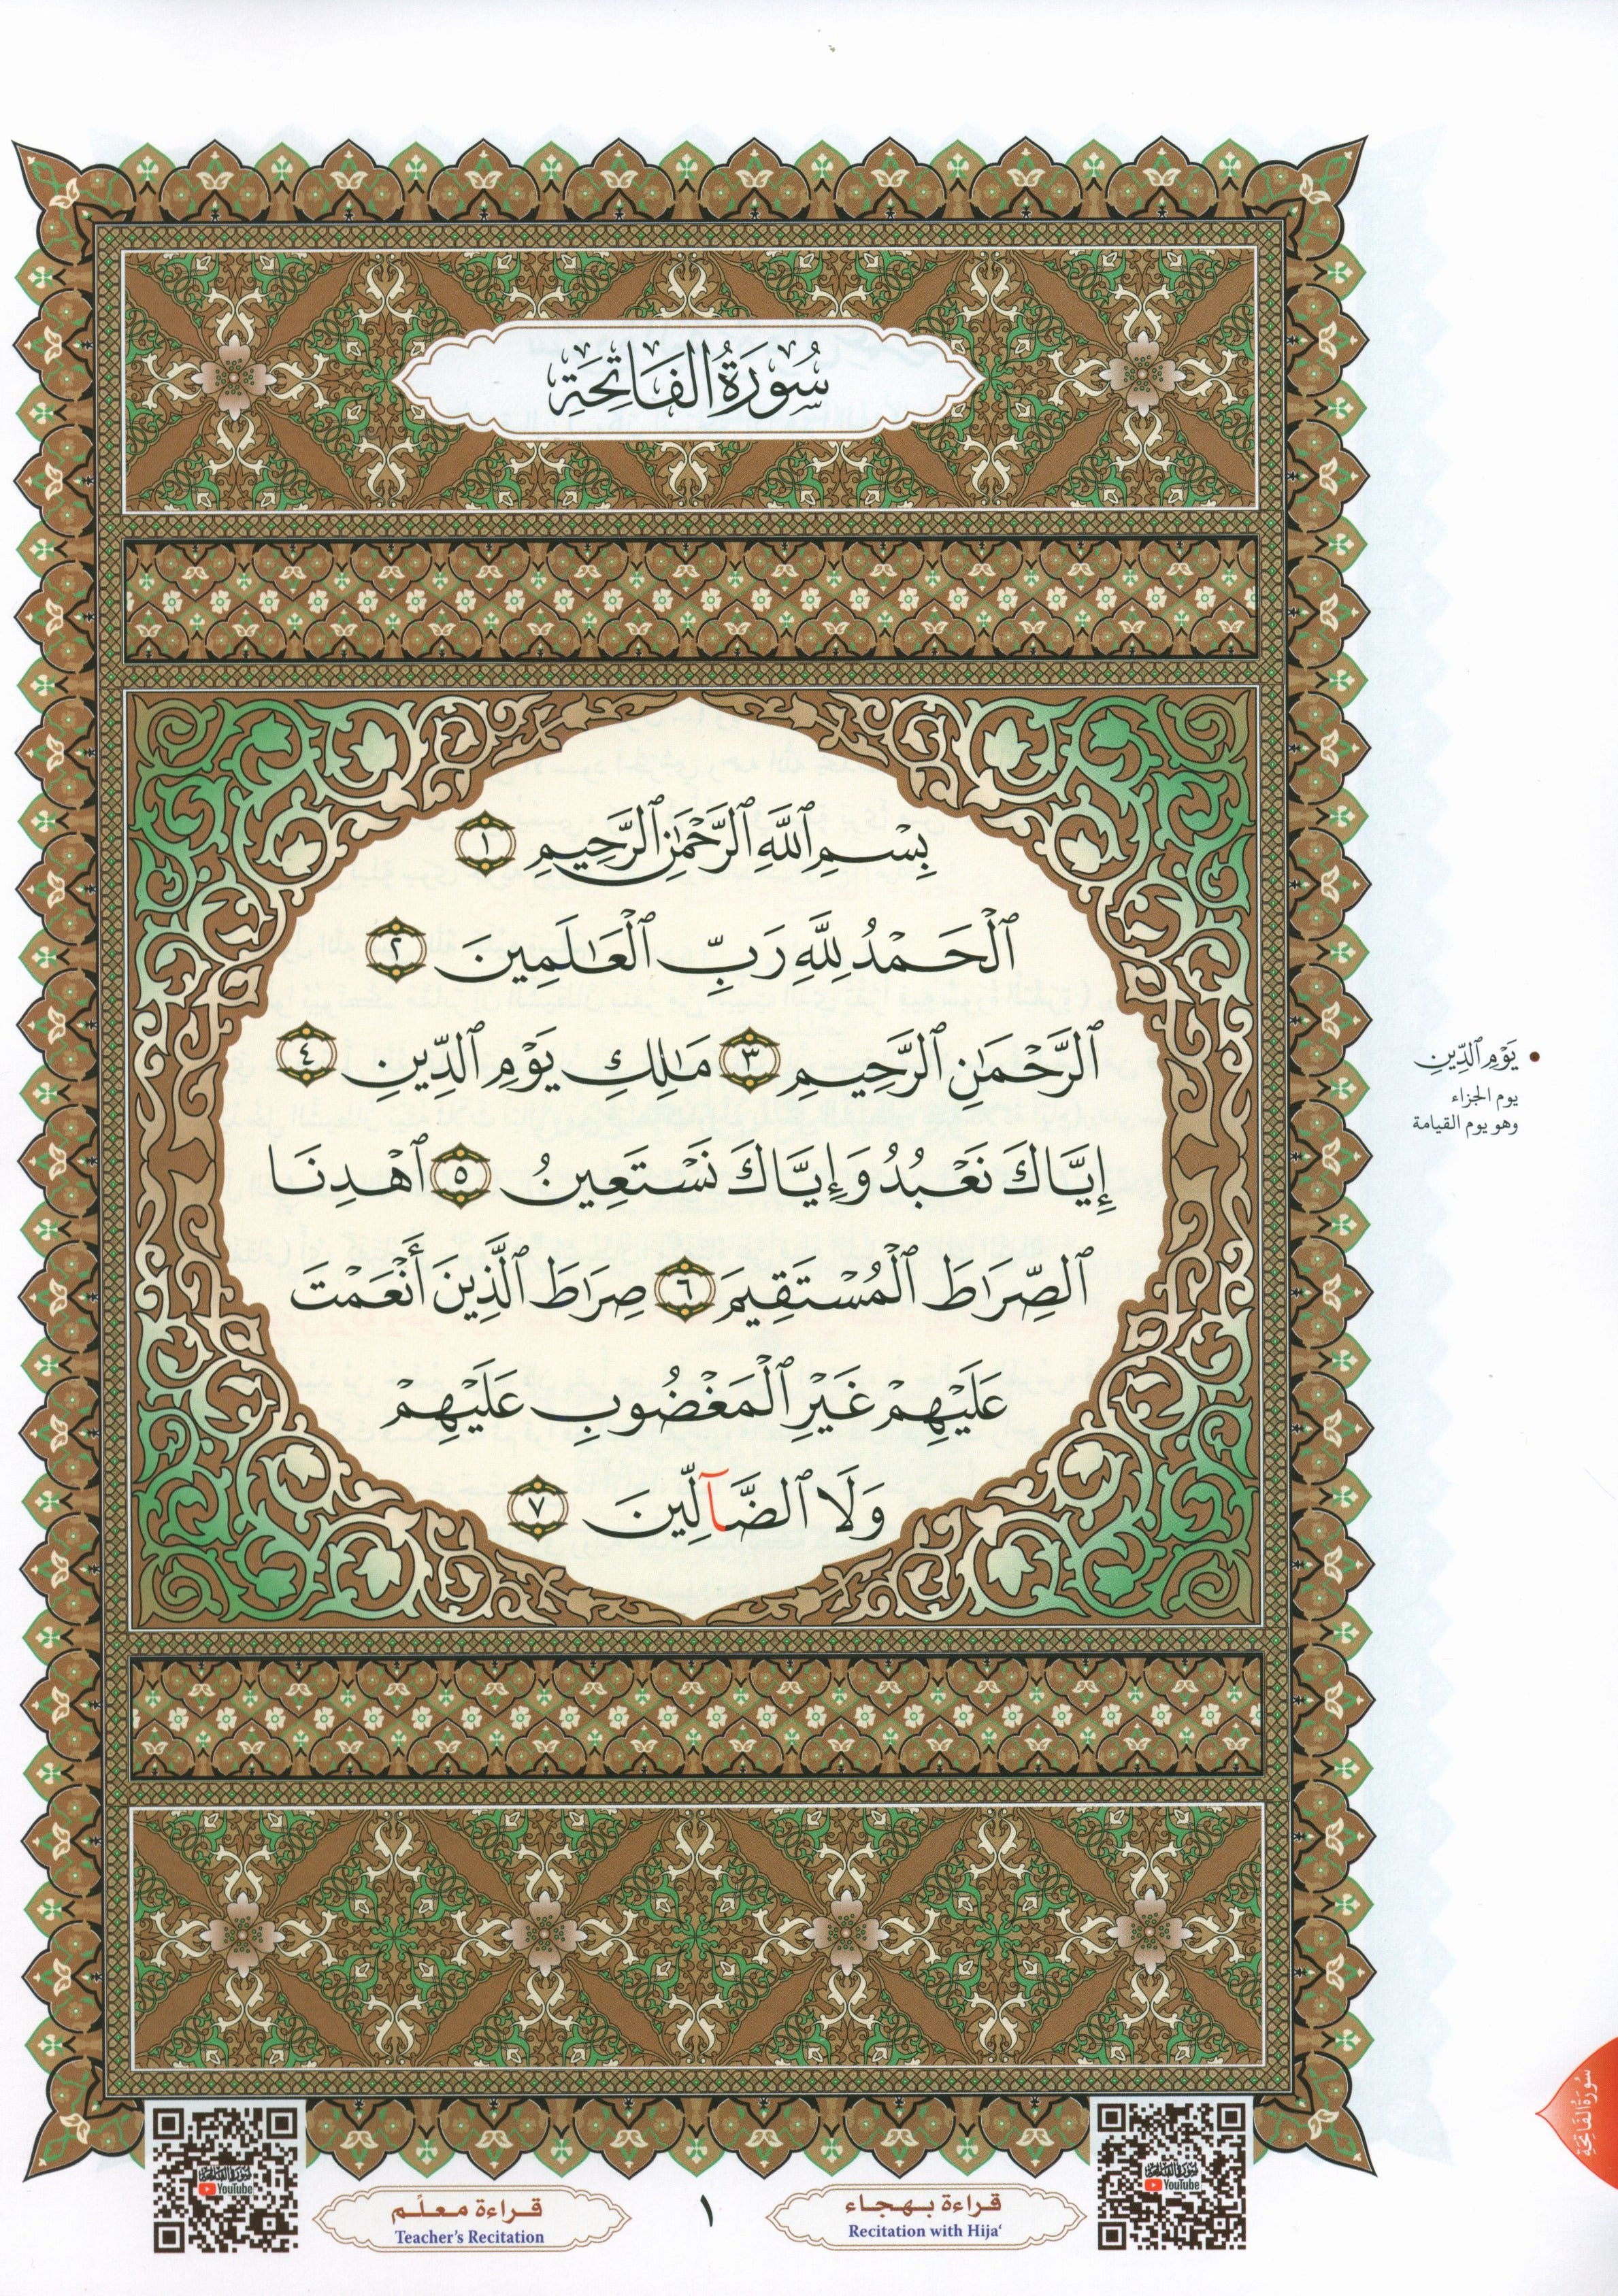 سُورَةُ الفَاتِحَةِ
بِسْمِ ٱللَّهِ ٱلرَّحْمَٰنِ ٱلرَّحِيمِ ١
ٱلْحَمْدُ لِلَّهِ رَبِّ ٱلْعَـٰلَمِينَ ٢
ٱلرَّحْمَٰنِ ٱلرَّحِيمِ ٣ مَـٰلِكِ يَوْمِ ٱلدِّينِ ٤
إِيَّاكَ نَعْبُدُ وَإِيَّاكَ نَسْتَعِينُ ٥ ٱهْدِنَا
ٱلصِّرَٰطَ ٱلْمُسْتَقِيمَ ٦ صِرَٰطَ ٱلَّذِينَ أَنْعَمْتَ
عَلَيْهِمْ غَيْرِ ٱلْمَغْضُوبِ عَلَيْهِمْ
وَلَا ٱلضَّآلِّينَ ٧
يَوْمِ ٱلدِّينِ
يوم الجزاء
وهو يوم القيامة
سُورَةُ الفَاتِحَةِ
سورة الفاتحة
YouTube
قراءة بهجاء
Recitation with Hija‘
١
قراءة معلّم
Teacher's Recitation
سورة الفاتحة
YouTube